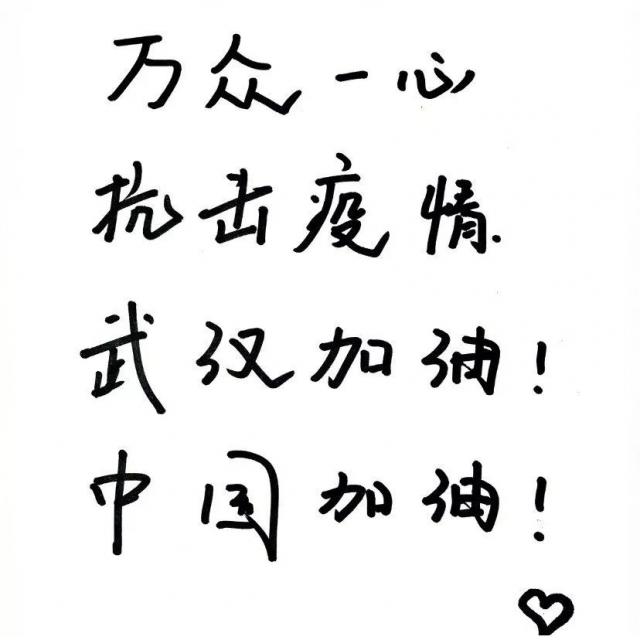 万众一心
抗击疫情.
武汉加油!
中国加油!